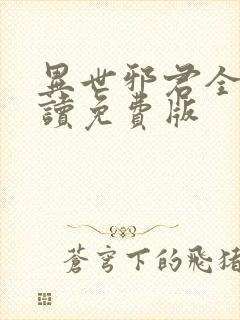 異世邪君全
讀免費版
蒼穹下的飛豬